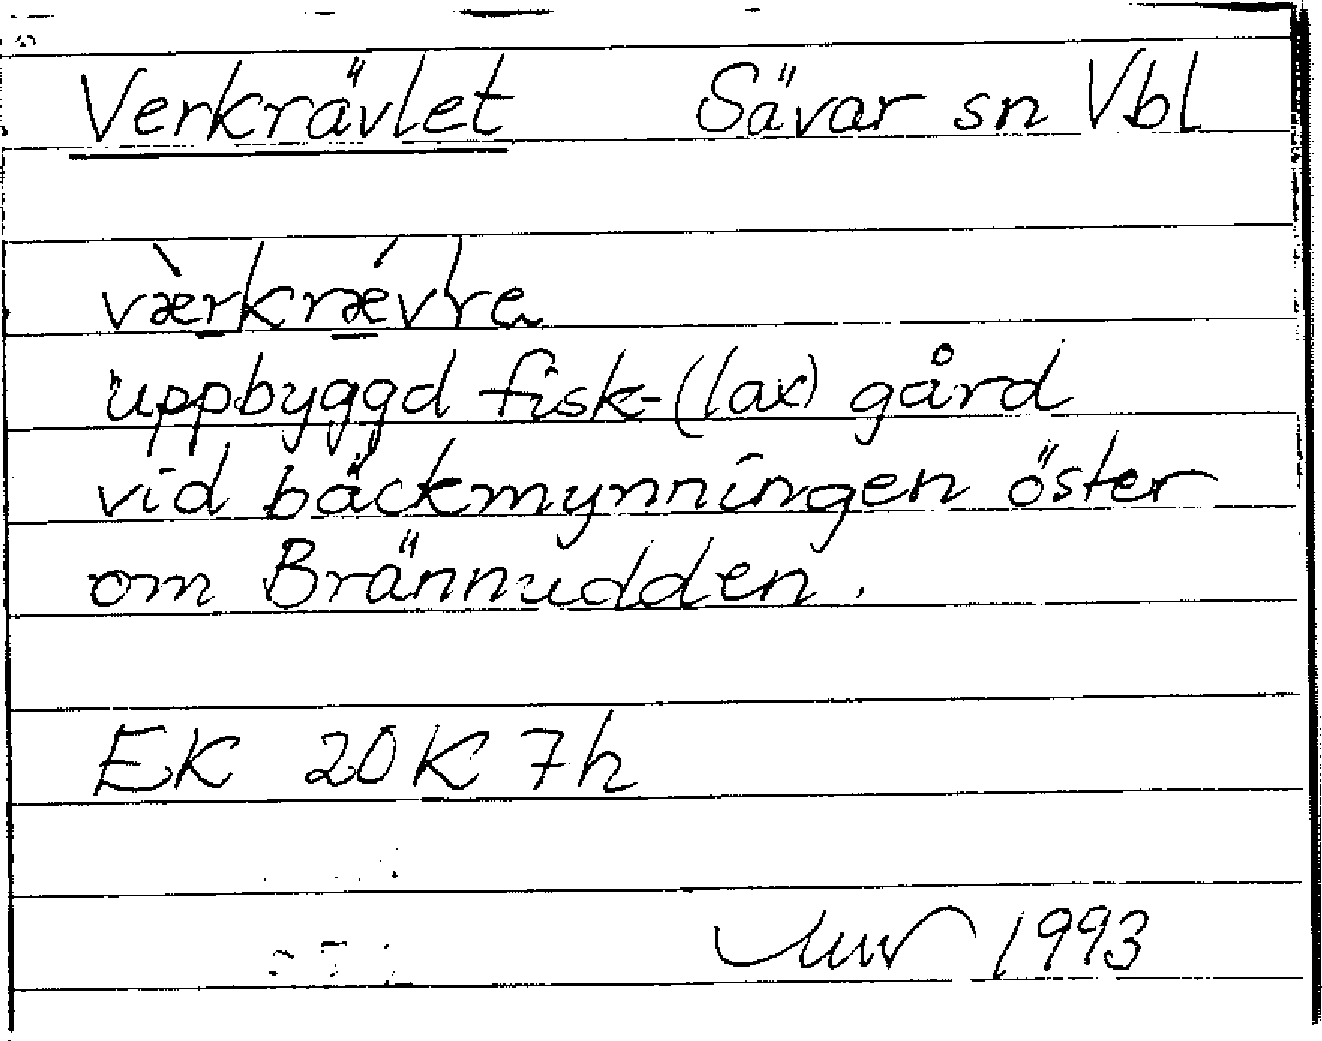 Verkrävlet Sävar sn Vbl
uppbyggd fisk-(lax) gård
vid bäckmynningen öster
om Brännudden.
EK 20K 7h
1993